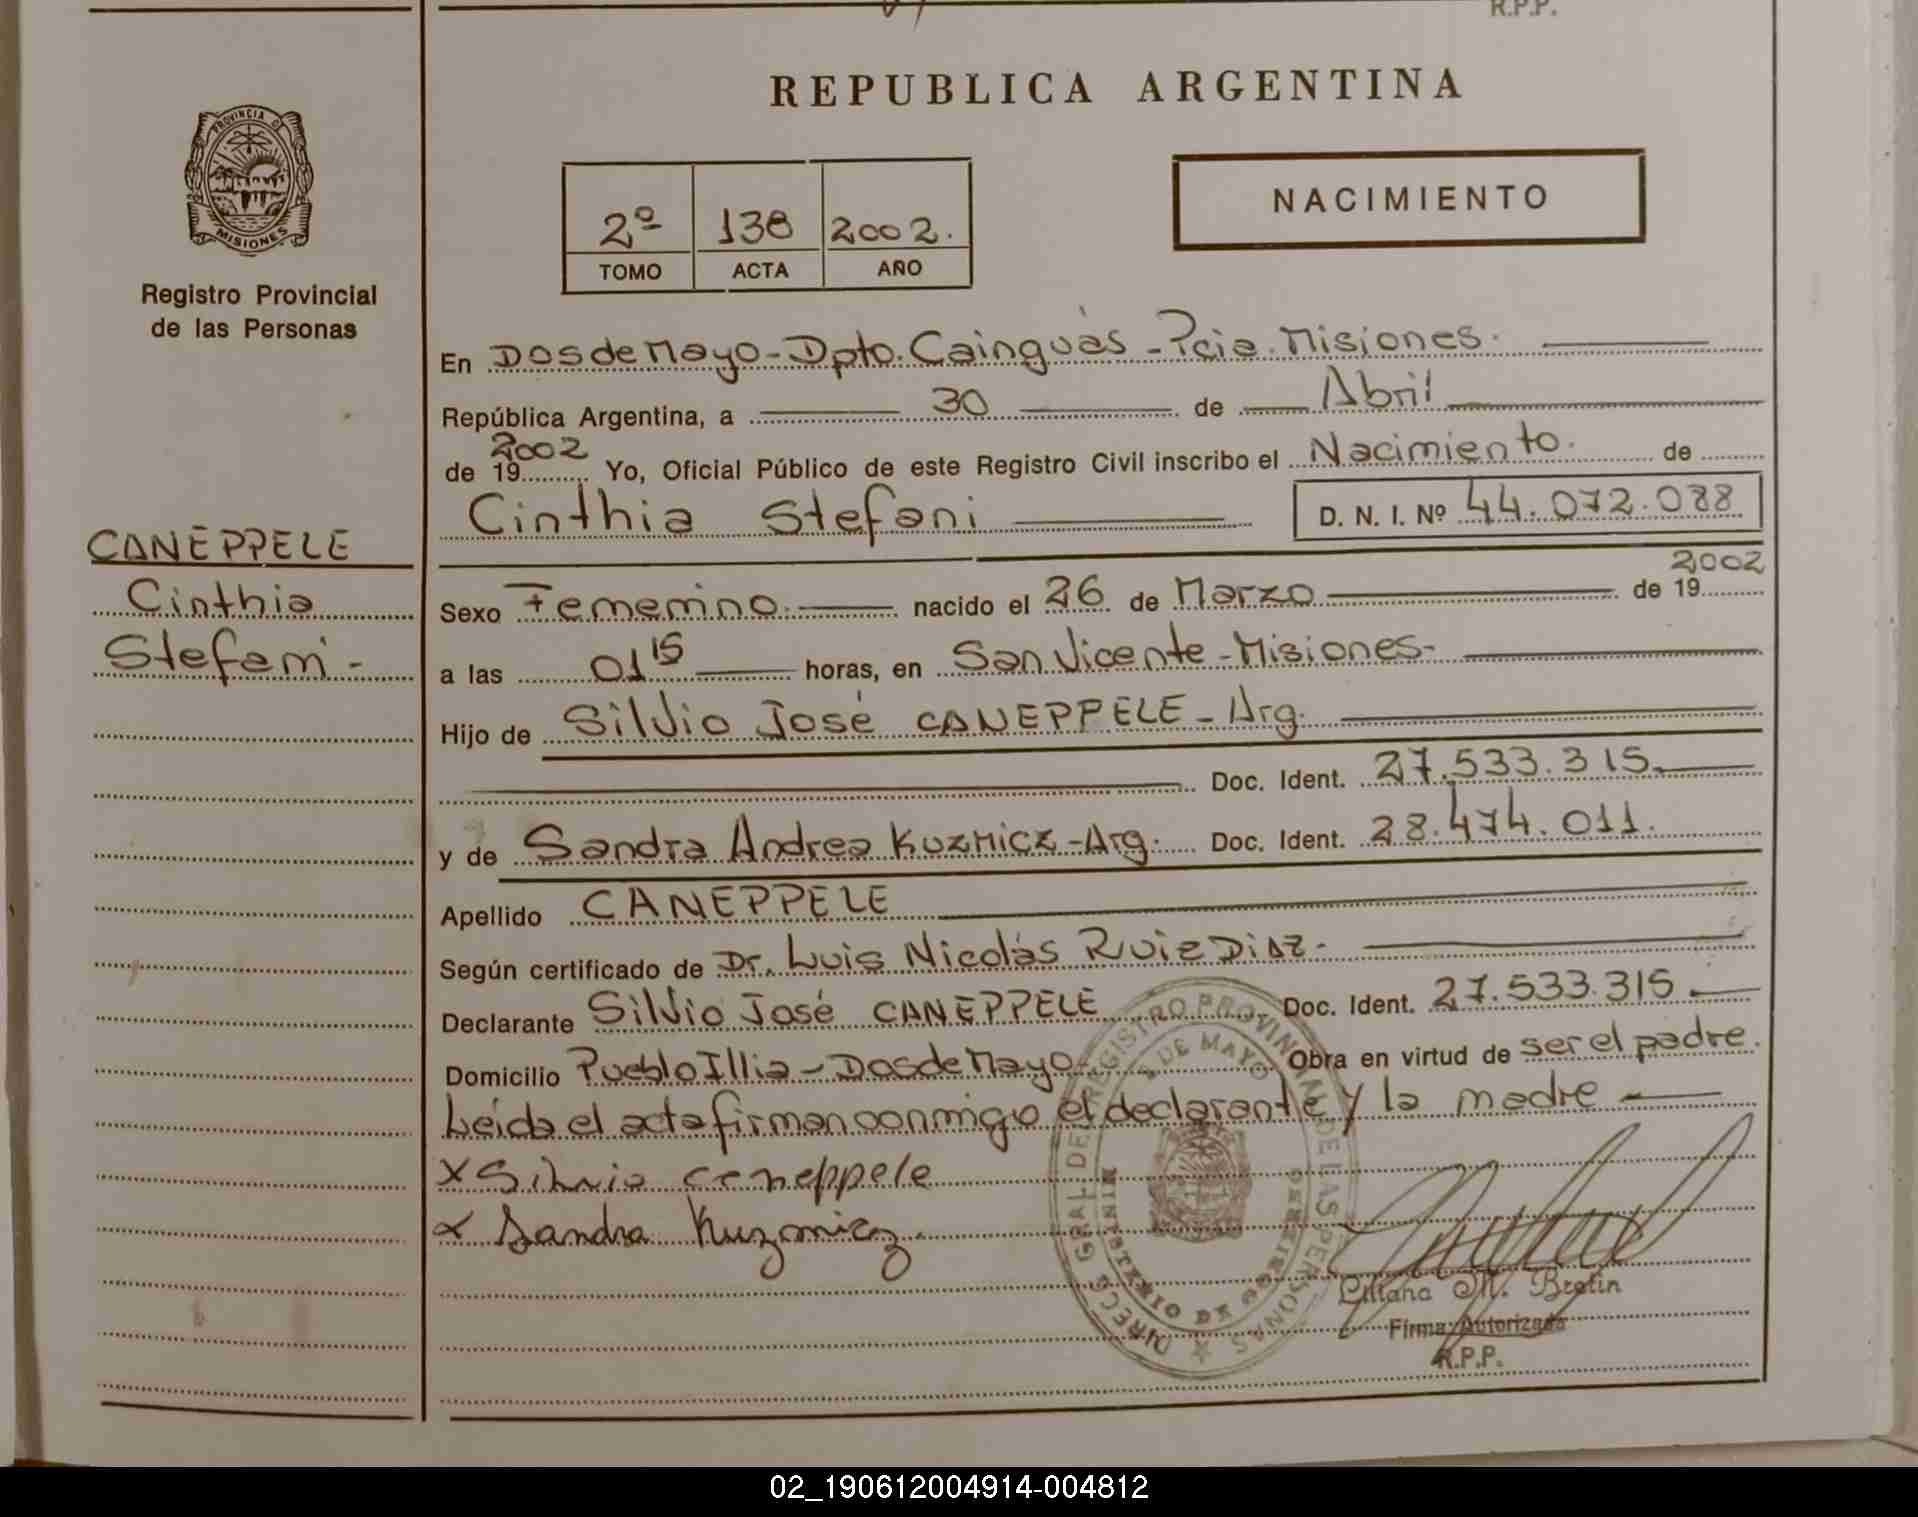 R.P.P.
REPUBLICA ARGENTINA
PROVINCIA D
MISIONES
Registro Provincial
de las Personas
NACIMIENTO
2º 138 2002.
TOMO ACTA AÑO
En Dos de Mayo - Dpto. Cainguás - Pcia. Misiones.
República Argentina, a 30 de Abril
de 19 2002 Yo, Oficial Público de este Registro Civil inscribo el Nacimiento. de
Cinthia Stefani D. N. I. Nº 44.072.088
CANEPPELE
Cinthia
Stefani -
Sexo Femenino. nacido el 26 de Marzo de 19 2002
a las 01 15 horas, en San Vicente - Misiones -
Hijo de Silvio José CANEPPELE - Arg.
Doc. Ident. 27.533.315.
y de Sandra Andrea Kuzmicz - Arg. Doc. Ident. 28.474.011.
Apellido CANEPPELE
Según certificado de Dr. Luis Nicolás Ruiz Diaz -
Declarante Silvio José CANEPPELE Doc. Ident. 27.533.315.
Domicilio Pueblo Illia - Dos de Mayo - Obra en virtud de ser el padre.
Leida el acta firman conmigo el declarante y la madre
x Silvio caneppele
x Sandra Kuzmicz.
DIREC. GRAL DEL REGISTRO PROVINCIAL DE LAS PERSONAS
2 DE MAYO
MINISTERIO DE GOBIERNO
Liliana M. Brolin
Firma Autorizada
R.P.P.
02_190612004914-004812